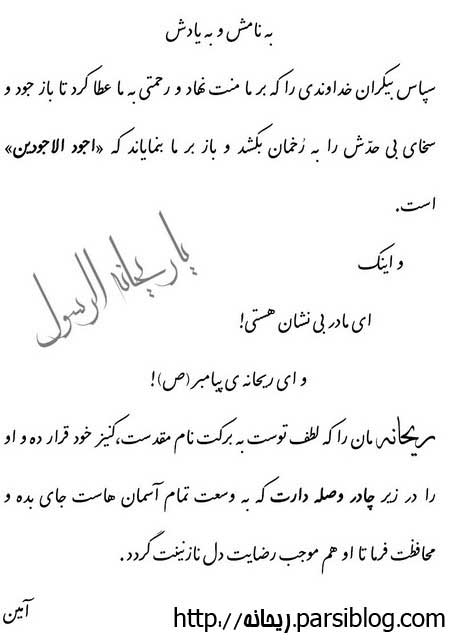 به نامش و به یادش
سپاس بیکران خداوندی را که بر ما منت نهاد و رحمتی به ما عطا کرد تا باز جود و
سخای بی حدّش را به رُخمان بکشد و باز بر ما بنمایاند که «اجود الاجودین»
است.
و اینک
یا ریحانه الرسول
ای مادر بی نشان هستی!
و ای ریحانه ی پیامبر(ص)!
ریحانه مان را که لطف توست به برکت نام مقدست،کنیز خود قرار ده و او
را در زیر چادر وصله دارت که به وسعت تمام آسمان هاست جای بده و
محافظت فرما تا او هم موجب رضایت دل نازنینت گردد.
آمین
http://ریحانه.parsiblog.com